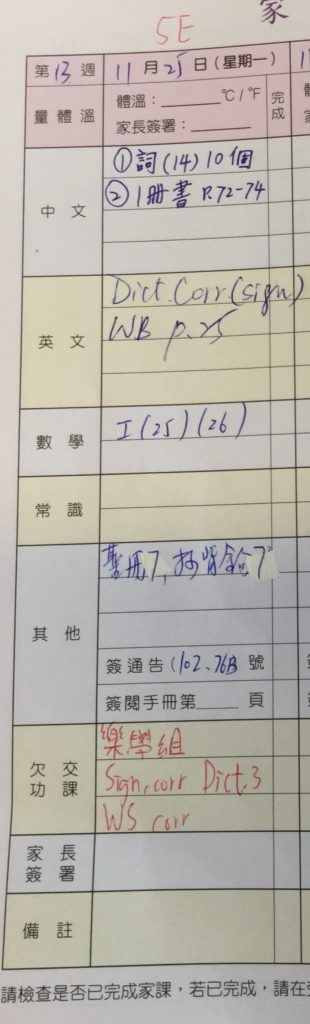 5E
家
第13週 11月25日(星期一)
量體溫 體溫：______°C/°F 完成
家長簽署：______
中文 ①詞(14)10個
②1冊書 P.72-74
英文 Dict. Corr.(sign)
WB p.25
數學 I(25)(26)
常識
其他
簽通告(102、76B 號
簽閱手冊第____頁
欠交功課 樂學組
Sign, corr Dict.3
WS corr
家長簽署
備註
請檢查是否已完成家課，若已完成，請在